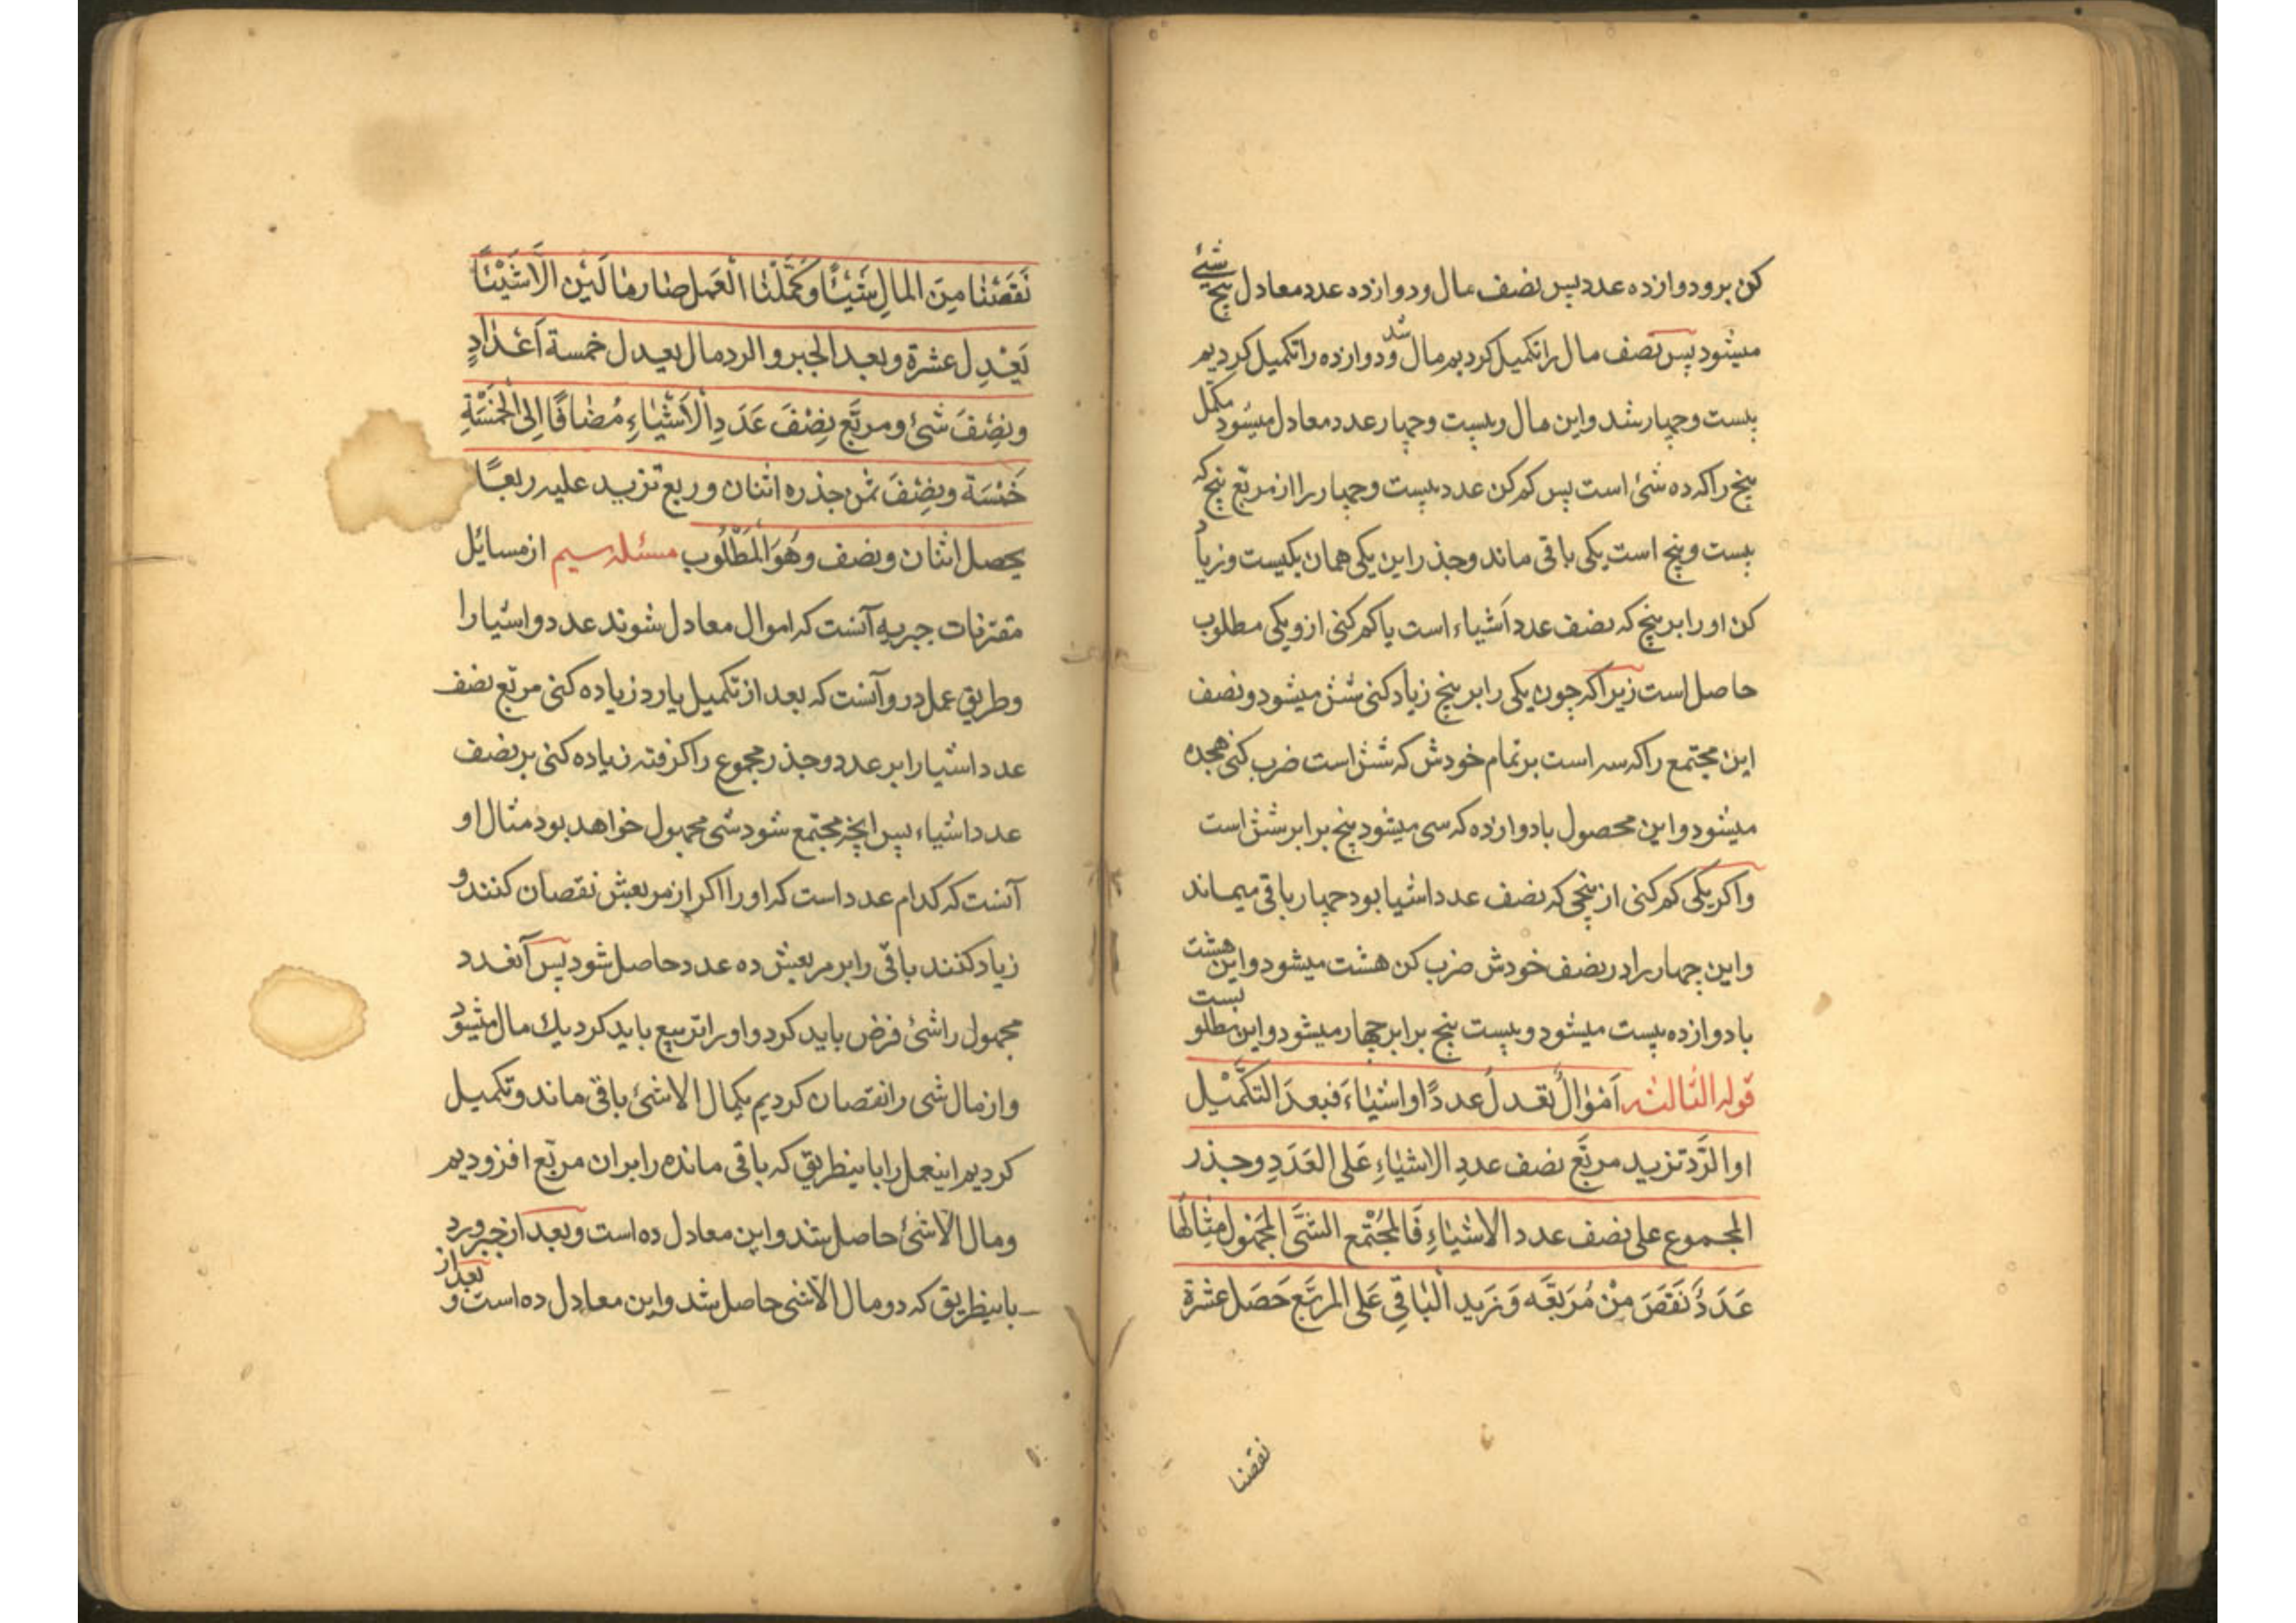 کن برو دوازده عدد پس نصف مال و دوازده عدد معادل پنج شیٔ
میشود پس نصف مال را تکمیل کردیم مال شد و دوازده را تکمیل کردیم
بیست و چهار شد و این مال و بیست و چهار عدد معادل میشود مکمل
پنج را که ده شئ است پس کم کن عدد بیست و چهار را از مربع پنج که
بیست و پنج است یکی باقی ماند و جذر این یکی همان یکیست و زیاد
کن او را بر پنج که نصف عدد اَشیاء است یا کم کنی ازو یکی مطلوب
حاصل است زیرا که چون یکی را بر پنج زیاد کنی شش میشود و نصف
این مجتمع را که سه است بر تمام خودش که شش است ضرب کنی هجده
میشود و این محصول با دوازده که سی میشود پنج برابر شش است
واکر یکی کم کنی از پنجی که نصف عدد اشیا بود چهار باقی میماند
و این چهار را در نصف خودش ضرب کن هشت میشود و این هشت
با دوازده بیست میشود و بیست پنج برابر چهار میشود و این مطلو بست
قوله الثالثه اَمْوالٌ تعدلُ عددًا و اشیٰاءَ فبعدَ التکَّمْیل
او الرَّد تزید مربَّع نصف عددِ الاشیٰاءِ عَلی العَدَدِ و جذر
المجموع علی نصف عدد الاشیٰاءِ فَالمجُتْمع الشَّی المجَهْول مِثٰالُها
عَدَدٌ نَقَصَ مِنْ مُرَبَّعَه وَ نَزید الْبٰاقِی عَلی المربَّع حَصَل عشرة
نقصنا
نَقَصْنٰا مِنَ المٰالِ شَیْئًا وَ کَمَّلْنٰا الْعَمل صٰار مٰالَیْن الاَّ شَیْئًا
یَعْدِل عشرة و بعد الجبر و الرد مال یعدل خمسة اَعْدٰادٍ
و نِصْفَ شئ و مربَّع نِصْفَ عَدَدِ الْاَشْیٰاءِ مُضٰافًا اِلیٰ الْخَمْسَةِ
خَمْسَة و نِصْفَ ثمن جذره اثنان و ربع تزید علیه ربعًا
یحصل اثنان و نصف و هُوَ المَطْلُوب مسئله سیم از مسایٔل
مقترنات جبریه آنست که اموال معادل شوند عدد و اشیا را
و طریق عمل در و آنست که بعد از تکمیل یا رد زیاده کنی مربع نصف
عدد اشیا را بر عدد و جذر مجموع را کرفته زیاده کنی بر نصف
عدد اشیاء پس انچه مجتمع شود شی مجهول خواهد بود مثال او
آنست که کدام عدد است که او را اکر از مربعش نقصان کنند و
زیاد کنند باقی را بر مربعش ده عدد حاصل شود پس آنعدد
مجهول را شئ فرض باید کرد و او را تربیع باید کرد یك مال میشود
و از مال شی را نقصان کردیم یکمال الا شئ باقی ماند و تکمیل
کردیم اینعمل را باینطریق که باقی مانده را بر ان مربّع افزودیم
و مال الا شئ حاصل شد و این معادل ده است و بعد از جبر و رد
باینطریق که دو مال الا شی حاصل شد و این معادل ده است و بعد از